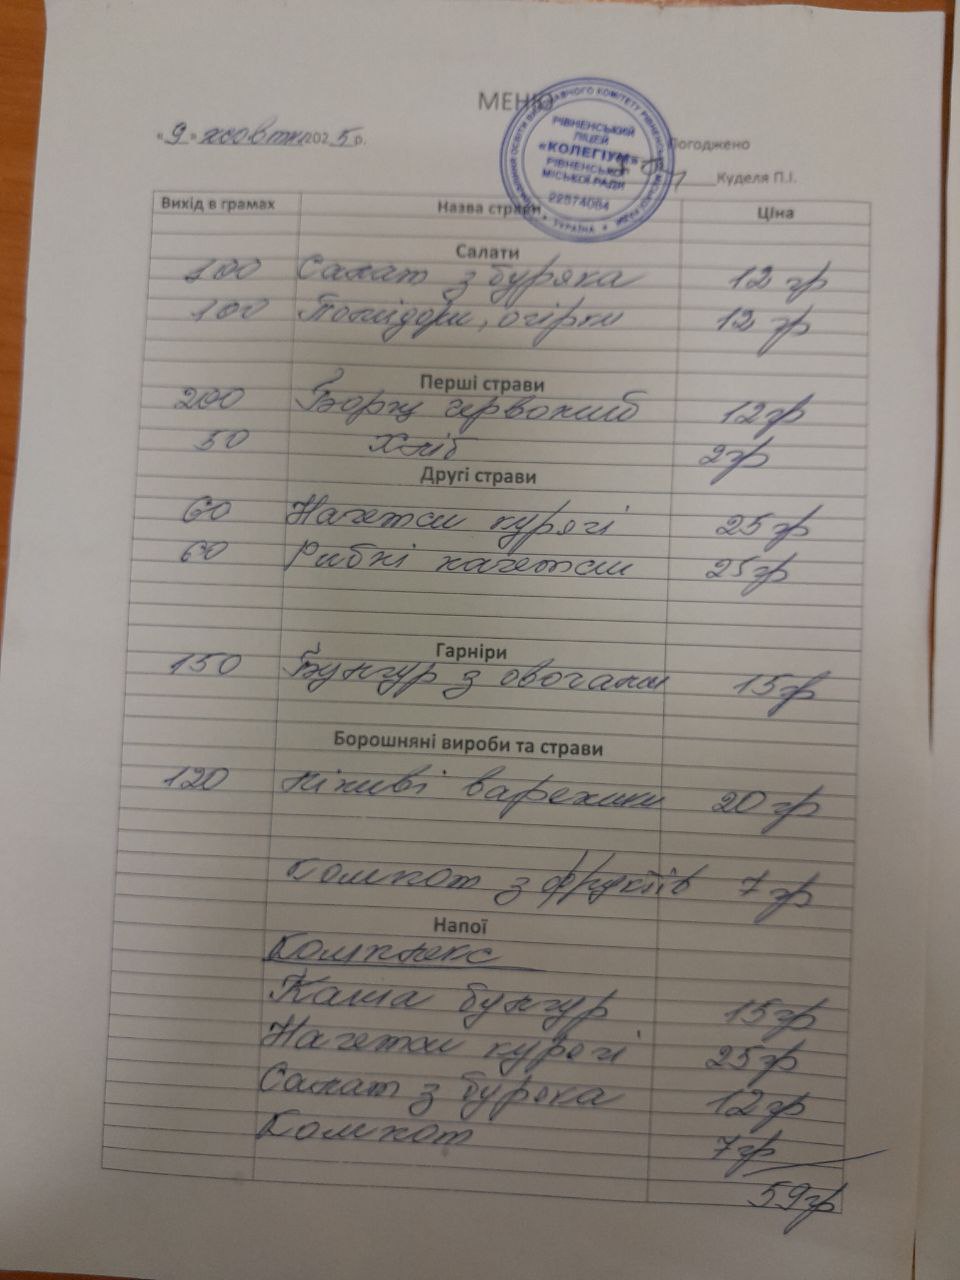 МЕНЮ
« 9 » жовтня 2025 р.
Погоджено
Куделя П.І.
УПРАВЛІННЯ ОСВІТИ ВИКОНАВЧОГО КОМІТЕТУ РІВНЕНСЬКОЇ МІСЬКОЇ РАДИ * УКРАЇНА *
РІВНЕНСЬКИЙ
ЛІЦЕЙ
«КОЛЕГІУМ»
РІВНЕНСЬКОЇ
МІСЬКОЇ РАДИ
22574084
Вихід в грамах Назва страви Ціна
Салати
100 Салат з буряка 12 гр
100 Помідори, огірки 12 гр
Перші страви
200 Борщ червоний 12 гр
50 Хліб 2 гр
Другі страви
60 Нагетси курячі 25 гр
60 Рибні нагетси 25 гр
Гарніри
150 Булгур з овочами 15 гр
Борошняні вироби та страви
120 Ліниві вареники 20 гр
Компот з фруктів 7 гр
Напої
Комплекс
Каша булгур 15 гр
Нагетси курячі 25 гр
Салат з буряка 12 гр
Компот 7 гр
59 гр